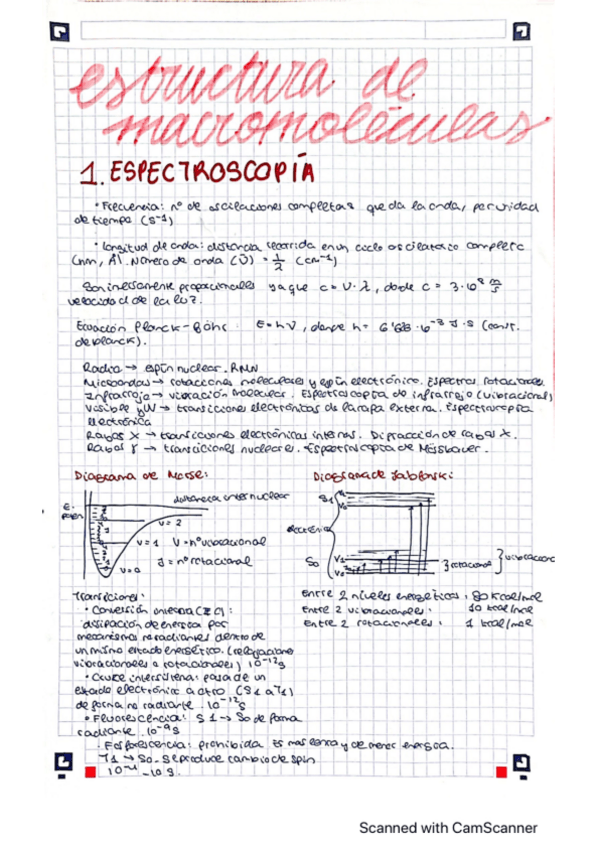 estructura de
macromoléculas
1. ESPECTROSCOPÍA
• Frecuencia: nº de oscilaciones completas que da la onda, por unidad
de tiempo (s⁻¹)
• longitud de onda: distancia recorrida en un ciclo oscilatorio completo
(nm, Å). Número de onda (ῡ) = 1/2 (cm⁻¹)
Son inversamente proporcionales ya que c = ν · λ, donde c = 3·10⁸ m/s
velocidad de la luz.
Ecuación Planck-Bohr: E = hν, donde h = J·s (const.
de planck).
Radio → espín nuclear. RMN
Microondas → rotaciones moleculares y espín electrónico. Espectros. rotacionales.
Infrarrojo → vibración molecular. Espectroscopía de infrarrojo (vibracional)
Visible y UV → transiciones electrónicas de la capa externa. Espectroscopía
electrónica
Rayos X → transiciones electrónicas internas. Difracción de rayos X.
Rayos γ → transiciones nucleares. Espectroscopía de Mössbauer.
Diagrama de Morse: Diagrama de Jablonski:
E.
poten. distancia internuclear
v=2
v=1
v=0
V = nº vibracional
J = nº rotacional
S1
electrónica
S0
V1
V0
} rotacional } vibracional
Transiciones:
• Conversión interna (IC):
disipación de energía por
mecanismos no radiantes dentro de
un mismo estado energético. (relajaciones
vibracionales o rotacionales) 10⁻¹²s
• Cruce intersistema: pasa de un
estado electrónico a otro (S1 a T1)
de forma no radiante. 10⁻¹²s
• Fluorescencia: S1 → S0 de forma
radiante. 10⁻⁹s
• Fosforescencia: prohibida. Es más lenta y de menor energía.
T1 → S0. Se produce cambio de spin
10⁻⁴ - 10 s.
Entre 2 niveles energéticos: 80 kcal/mol
Entre 2 vibracionales: 10 kcal/mol
entre 2 rotacionales: 1 kcal/mol
Scanned with CamScanner